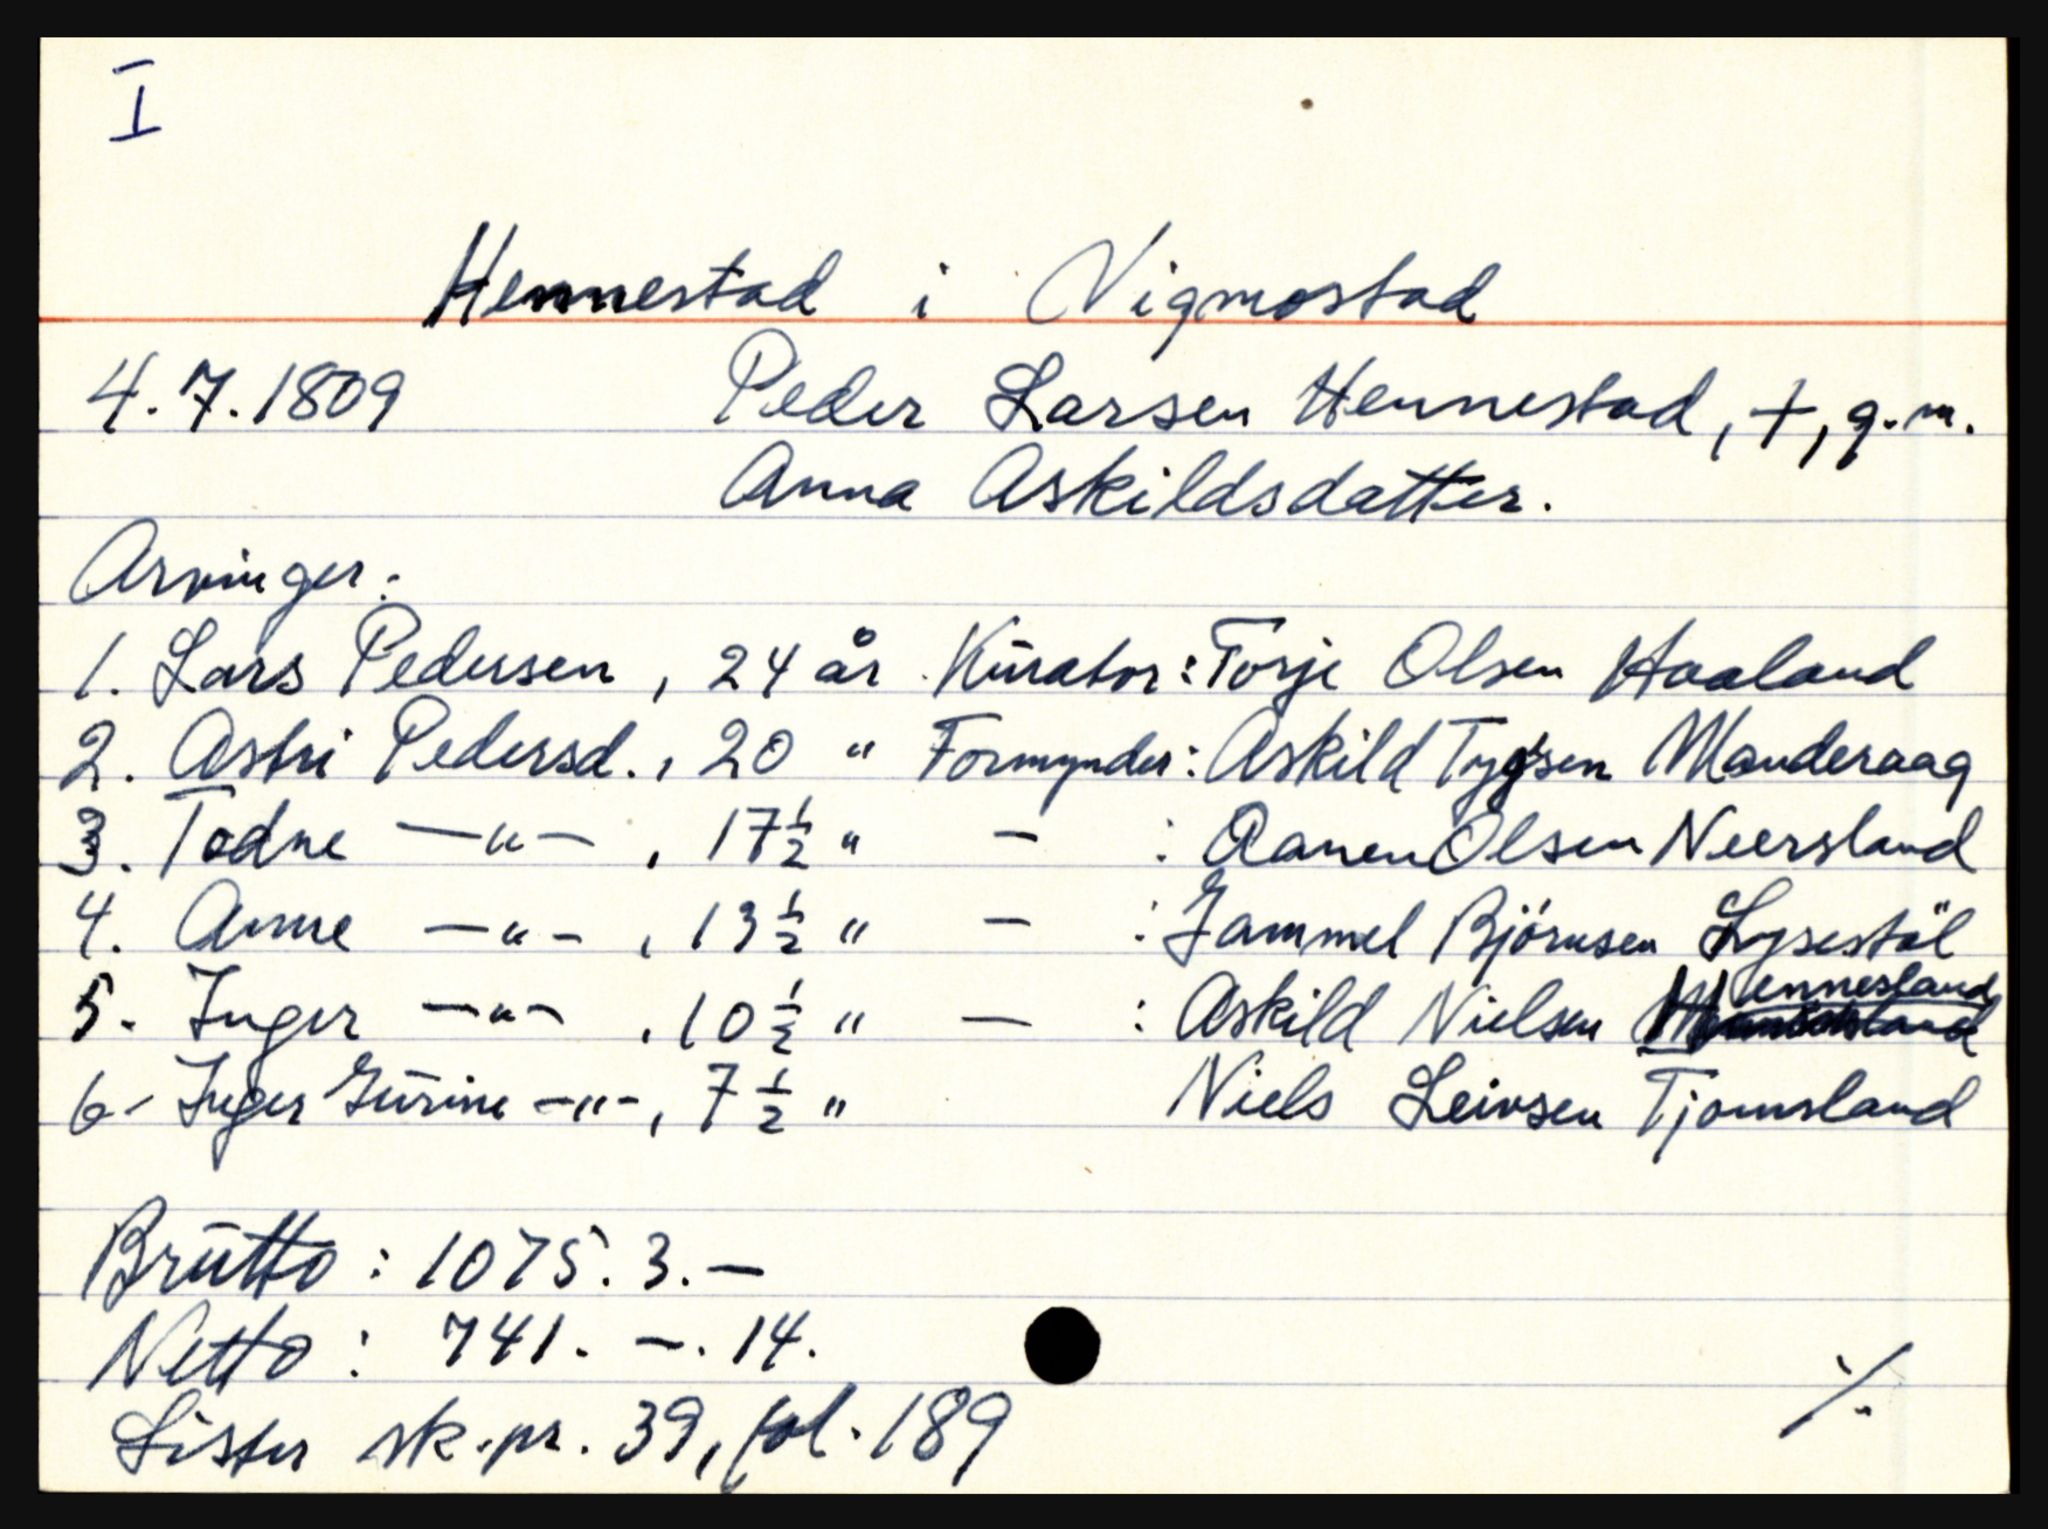 I
Hennestad i Nigmostad
4.7.1809 Peder Larsen Hennestad, +, g.m.
Anna Askildsdatter.
Arvinger:
1. Lars Pedersen, 24 år. Kurator: Torje Olsen Haaland
2. Astri Pedersd., 20 " Formynder: Askild Tygsen Manderaag
3. Todne —"—, 17½ " — : Ranen Olsen Neersland
4. Anne —"—, 13½ " — : Gammel Björnsen Lysestöl
5. Inger —"—, 10½ " — : Askild Nielsen Mennesland
6. Inger Gurine —"—, 7½ " Niels Leivsen Tjomsland
Brutto: 1075. 3. —
Netto: 741. —. 14.
Lister sk.pr. 39, fol. 189
./.